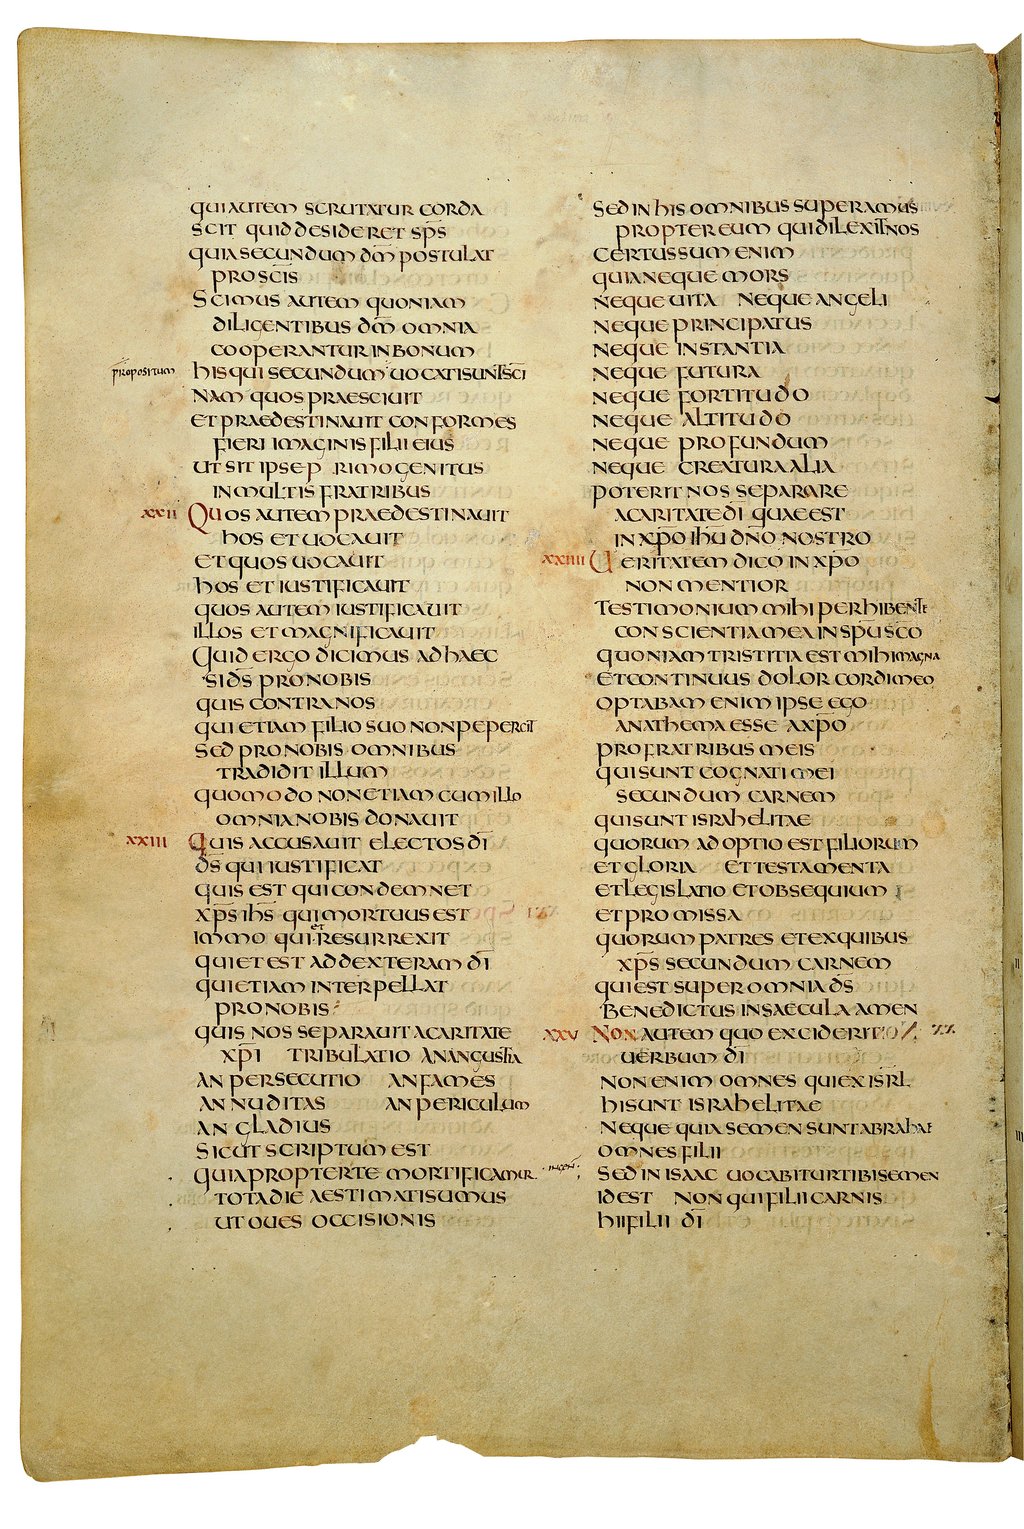 QUI AUTEM SCRUTATUR CORDA
SCIT QUID DESIDERET SP̄S
QUIA SECUNDUM DM̄ POSTULAT
PRO SC̄IS
SCIMUS AUTEM QUONIAM
DILIGENTIBUS DM̄ OMNIA
COOPERANTUR IN BONUM
propositum
HIS QUI SECUNDUM UOCATI SUNT SC̄I
NAM QUOS PRAESCIUIT
ET PRAEDESTINAUIT CONFORMES
FIERI IMAGINIS FILII EIUS
UT SIT IPSE P RIMOGENITUS
IN MULTIS FRATRIBUS
XXII QUOS AUTEM PRAEDESTINAUIT
HOS ET UOCAUIT
ET QUOS UOCAUIT
HOS ET IUSTIFICAUIT
QUOS AUTEM IUSTIFICAUIT
ILLOS ET MAGNIFICAUIT
QUID ERGO DICIMUS AD HAEC
SI DS̄ PRO NOBIS
QUIS CONTRA NOS
QUI ETIAM FILIO SUO NON PEPERCIT
SED PRO NOBIS OMNIBUS
TRADIDIT ILLUM
QUOMODO NON ETIAM CUM ILLO
OMNIA NOBIS DONAUIT
XXIII QUIS ACCUSAUIT ELECTOS DĪ
DS̄ QUI IUSTIFICAT
QUIS EST QUI CONDEMNET
XP̄S IHS̄ QUI MORTUUS EST
IMMO QUI et RESURREXIT
QUI ET EST AD DEXTERAM DĪ
QUI ETIAM INTERPELLAT
PRO NOBIS
QUIS NOS SEPARAUIT A CARITATE
XP̄I TRIBULATIO AN ANGUSTIA
AN PERSECUTIO AN FAMES
AN NUDITAS AN PERICULUM
AN GLADIUS
SICUT SCRIPTUM EST
QUIA PROPTER TE MORTIFICAMUR
TOTA DIE AESTIMATI SUMUS
UT OUES OCCISIONIS
SED IN HIS OMNIBUS SUPERAMUS
PROPTER EUM QUI DILEXIT NOS
CERTUS SUM ENIM
QUIA NEQUE MORS
NEQUE UITA NEQUE ANGELI
NEQUE PRINCIPATUS
NEQUE INSTANTIA
NEQUE FUTURA
NEQUE FORTITUDO
NEQUE ALTITUDO
NEQUE PROFUNDUM
NEQUE CREATURA ALIA
POTERIT NOS SEPARARE
A CARITATE DĪ QUAE EST
IN XP̄O IHŪ DN̄O NOSTRO
XXIIII UERITATEM DICO IN XP̄O
NON MENTIOR
TESTIMONIUM MIHI PERHIBENTE
CONSCIENTIA MEA IN SP̄U SC̄O
QUONIAM TRISTITIA EST MIHI MAGNA
ET CONTINUUS DOLOR CORDI MEO
OPTABAM ENIM IPSE EGO
ANATHEMA ESSE A XP̄O
PRO FRATRIBUS MEIS
QUI SUNT COGNATI MEI
SECUNDUM CARNEM
QUI SUNT ISRAHELITAE
QUORUM ADOPTIO EST FILIORUM
ET GLORIA ET TESTAMENTA
ET LEGISLATIO ET OBSEQUIUM
ET PROMISSA
QUORUM PATRES ET EX QUIBUS
XP̄S SECUNDUM CARNEM
QUI EST SUPER OMNIA DS̄
BENEDICTUS IN SAECULA AMEN
XXV NON AUTEM QUO EXCIDERIT
UERBUM DĪ
NON ENIM OMNES QUI EX ISRL̄
HI SUNT ISRAHELITAE
NEQUE QUIA SEMEN SUNT ABRAHAE
OMNES FILII
SED IN ISAAC UOCABITUR TIBI SEMEN
ID EST NON QUI FILII CARNIS
HII FILII DĪ